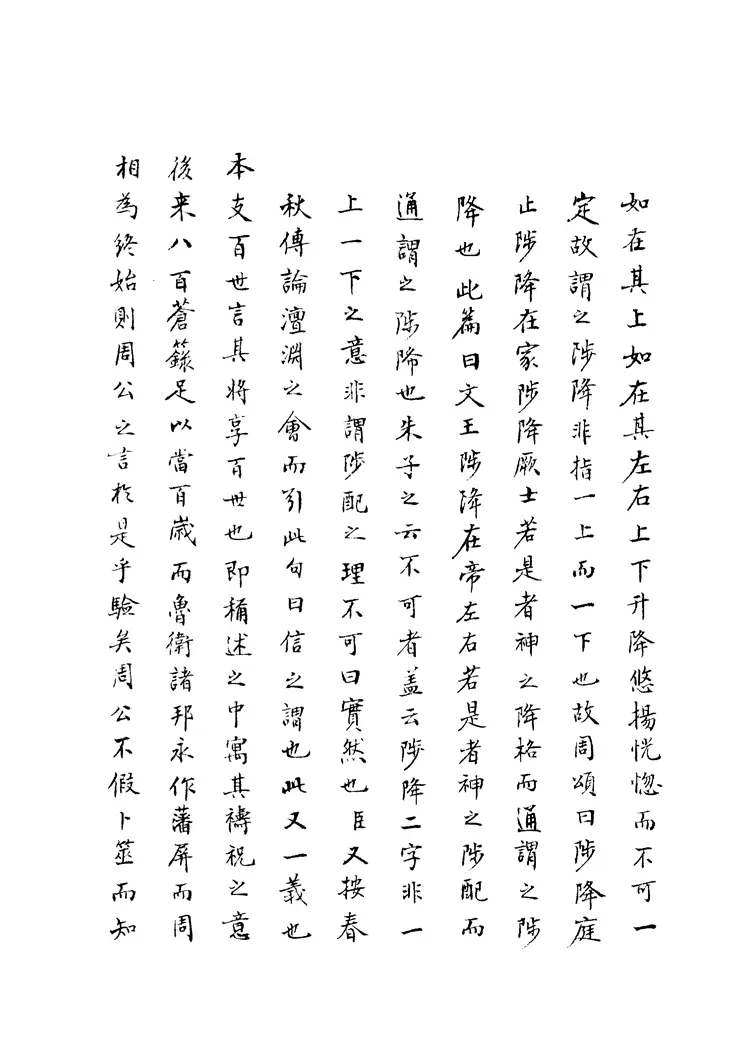 如在其上如在其左右上下升降悠揚恍惚而不可一
定故謂之陟降非指一上而一下也故周頌曰陟降庭
止陟降在家陟降厥士若是者神之降格而通謂之陟
降也此篇曰文王陟降在帝左右若是者神之陟配而
通謂之陟降也朱子之云不可者盖云陟降二字非一
上一下之意非謂陟配之理不可曰實然也臣又按春
秋傳論澶淵之會而引此句曰信之謂也此又一義也
本支百世言其將享百世也即稱述之中寓其禱祝之意
後来八百蒼籙足以當百歲而魯衛諸邦永作藩屏而周
相為終始則周公之言於是乎驗矣周公不假卜筮而知